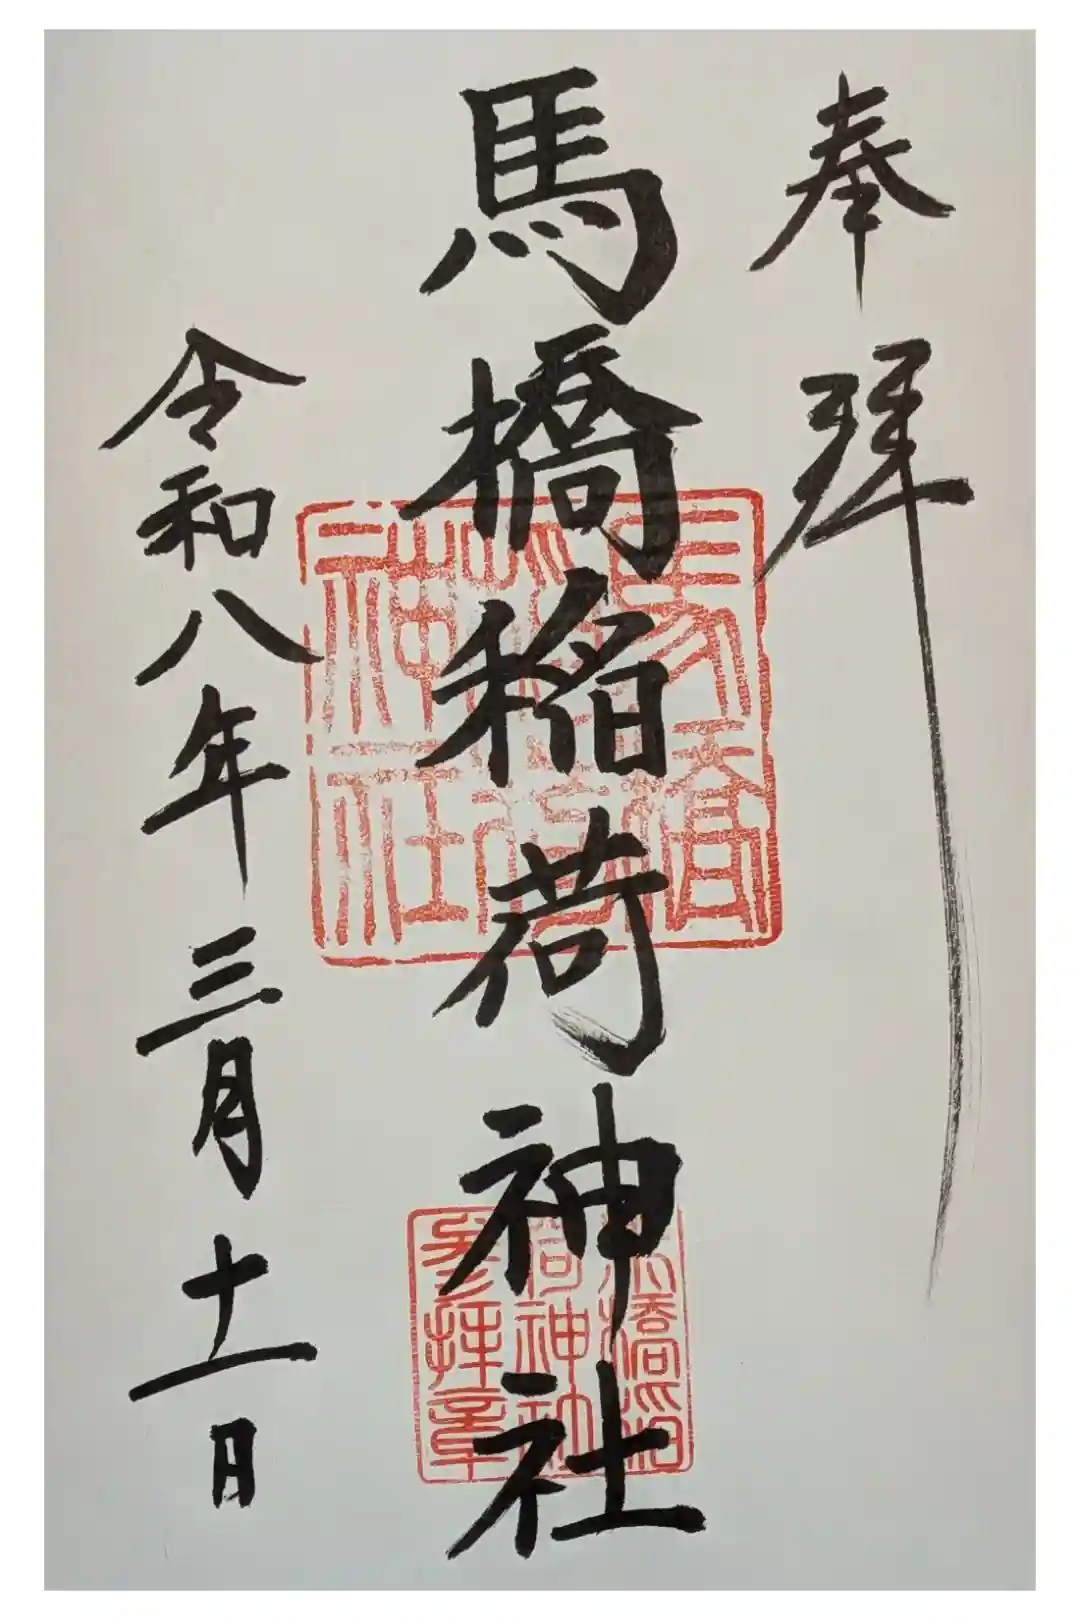 奉拝
馬橋稲荷神社
令和八年三月十一日
馬橋
稲荷
神社
馬橋稲
荷神社
参拝章